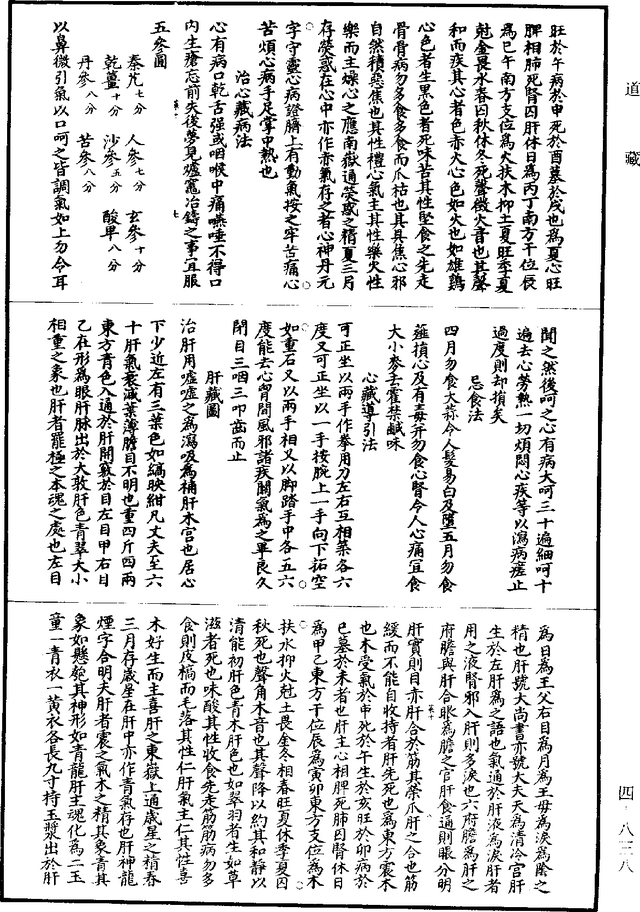 道藏
旺於午病於申死於酉墓於戌也為夏心旺
脾相肺死腎囚肝休日為丙丁南方干位辰
為巳午南方支位為火扶木抑土夏旺季夏
尅金畏水春囚秋休冬死聲微火音也其聲
和而疾其心者色赤火心色如火也如雄鷄
心色者生黑色者死味苦其性堅食之先走
骨骨病勿多食多食而爪枯也其臭焦心邪
自然積惡焦也其性禮心氣主其性樂火性
樂而主燥心之應南嶽通熒惑之精夏三月
存熒惑在心中亦作赤氣存之者心神丹元
字守靈心病證臍上有動氣按之牢苦痛心
苦煩心病手足掌中熱也
治心藏病法
心有病口乾舌强或咽喉中痛嚥唾不得口
內生瘡忘前失後夢見爐竈冶鑄之事宜服
五參圓
秦艽七分　人參七分　玄參十分
乾薑十分　沙參五分　酸單八分
丹參八分　苦參八分
以鼻微引氣以口呵之皆調氣如上勿令耳
聞之然後呵之心有病大呵三十遍細呵十
遍去心勞熱一切煩悶心疾等以瀉病瘥止
過度則却損矣
忌食法
四月勿食大蒜令人髮易白及墮五月勿食
薤損心及有毒并勿食心腎令人心痛宜食
大小麥去霍禁鹹味
心藏導引法
可正坐以兩手作拳用力左右互相築各六
度又可正坐以一手按腕上一手向下拓空
如重石又以兩手相叉以脚踏手中各五六
度能去心胷間風邪諸疾關氣為之畢良久
閉目三咽三叩齒而止
肝藏圖
治肝用噓噓之為瀉吸為補肝木宮也居心
下少近左有三葉色如縞映紺凡丈夫至六
十肝氣衰減葉薄膽目不明也重四斤四兩
東方青色入通於肝開竅於目左目甲右目
乙在形為眼肝脉出於大敦肝色青翠大小
相重之象也肝者罷極之本魂之處也左目
為日為王父右目為月為王母為淚為陰之
精也肝號大尚書亦號大夫夫為清冷宮肝
生於左肝為之語也氣通於肝液為淚肝者
用之液腎邪入肝則多淚也六府膽為肝之
府膽與肝合眼為膽之官肝食通則眼分明
肝實則目赤肝合於筋其榮爪肝之合也筋
緩而不能自收持者肝先死也為東方震木
也木受氣於申死於午生於亥旺於卯病於
巳墓於未者也肝主心相脾死肺囚腎休日
為甲乙東方干位辰為寅卯東方支位為木
扶水抑火尅土畏金冬相春旺夏休季夏囚
秋死也聲角木音也其聲降以約其和靜以
清能初肝色青木肝色也如翠羽者生如草
滋者死也味酸其性收食先走筋筋病勿多
食則皮槁而毛落其性仁肝氣主仁其性喜
木好生而主喜肝之東嶽上通歲星之精春
三月存歲星在肝中亦作青氣存也肝神龍
煙字合明夫肝者震之氣木之精其象青其
象如懸匏其神形如青龍肝主魂化為二玉
童一青衣一黃衣各長九寸持玉漿出於肝
四-八三八